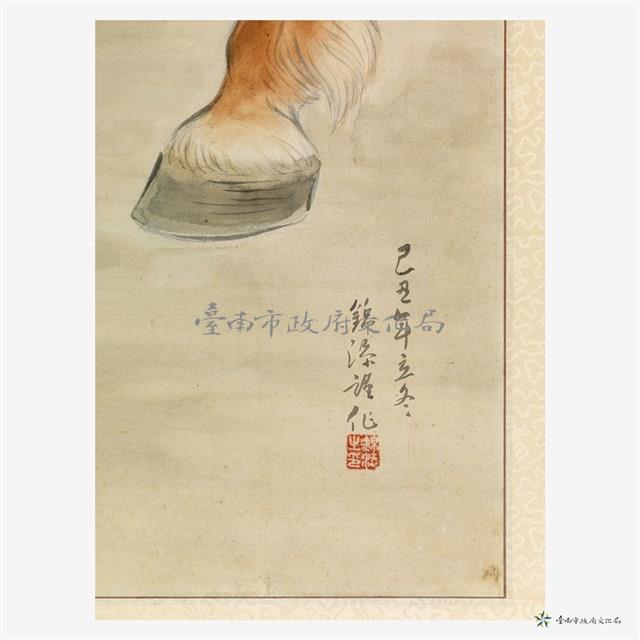 己丑年立冬
錦添謹作
錦添之印
臺南市政府文化局
臺南市政府文化局